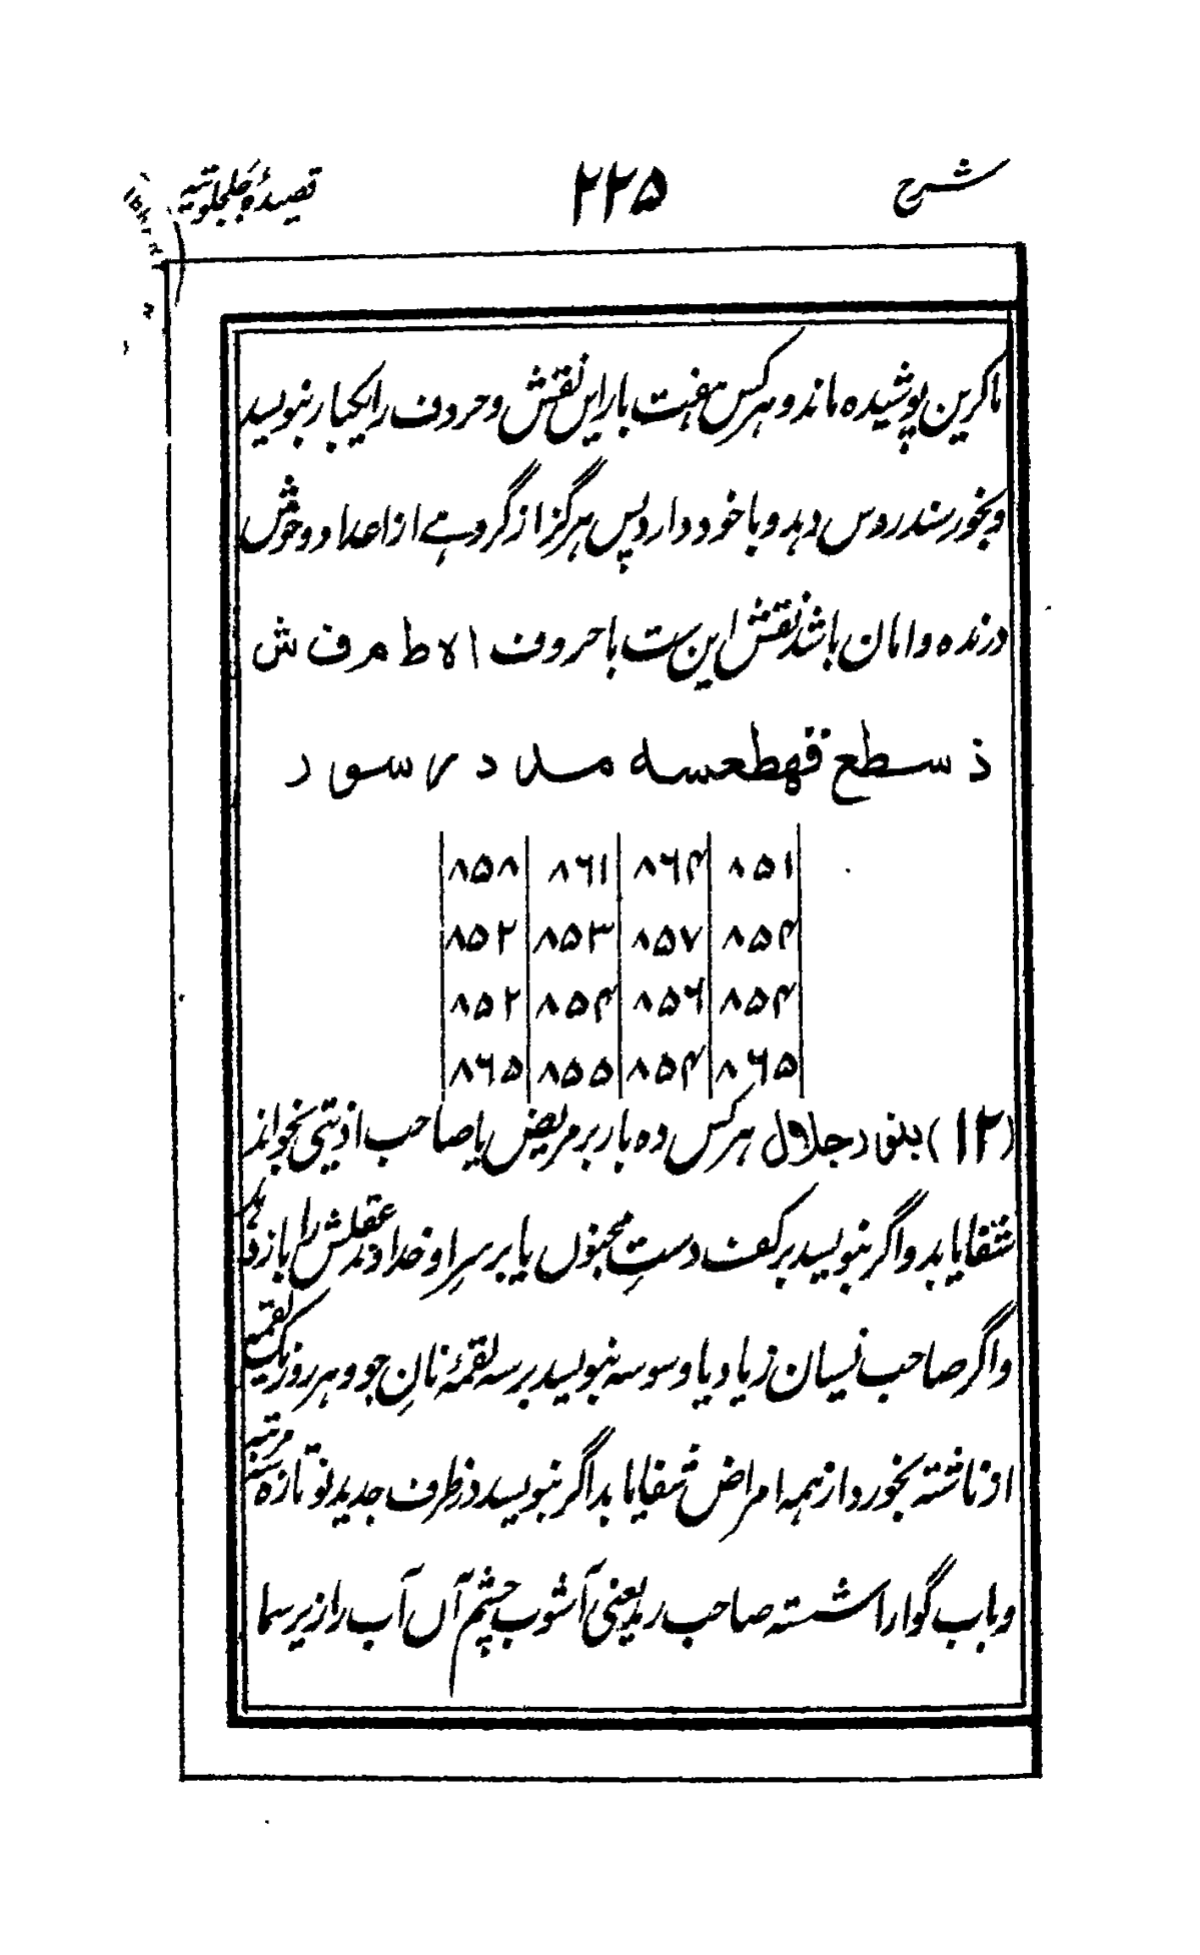 شرح ۲۲۵ قصیدۂ جلجلوتیہ
ماکرین پوشیدہ ماند و ہرکس ہفت بار این نقش و حروف را یکبار بنویسد
و بخور سندروس دہد و با خود دارد پس ہرگز از گروہے از اعداد وحوش
درندہ و امان باشد نقش این ست با حروف ا ہ ط م ف ش
ذ سطع قهطعسه د سود
۸۵۱ ۸۶۴ ۸۶۱ ۸۵۸
۸۵۴ ۸۵۷ ۸۵۳ ۸۵۲
۸۵۴ ۸۵۶ ۸۵۴ ۸۵۲
۸۶۵ ۸۵۴ ۸۵۵ ۸۶۵
(۱۲) بنود جلال ہرکس دہ بار بر مریض یا صاحب اذیتی بخواند
شفا یابد و اگر بنویسد بر کف دستِ مجنوں یا بر سرِ او خداوند عقلش را باز دہد
و اگر صاحب نسیان زیاد یا وسوسہ بنویسد بر سہ لقمۂ نانِ جو و ہر روز یک لقمہ
از ناشتہ بخورد از ہمہ امراض شفا یابد اگر بنویسد در ظرف جدید نو تازہ سہ مرتبہ
و باب گوارا شستہ صاحب رمد یعنی آشوب چشم آں آب را زیر سما